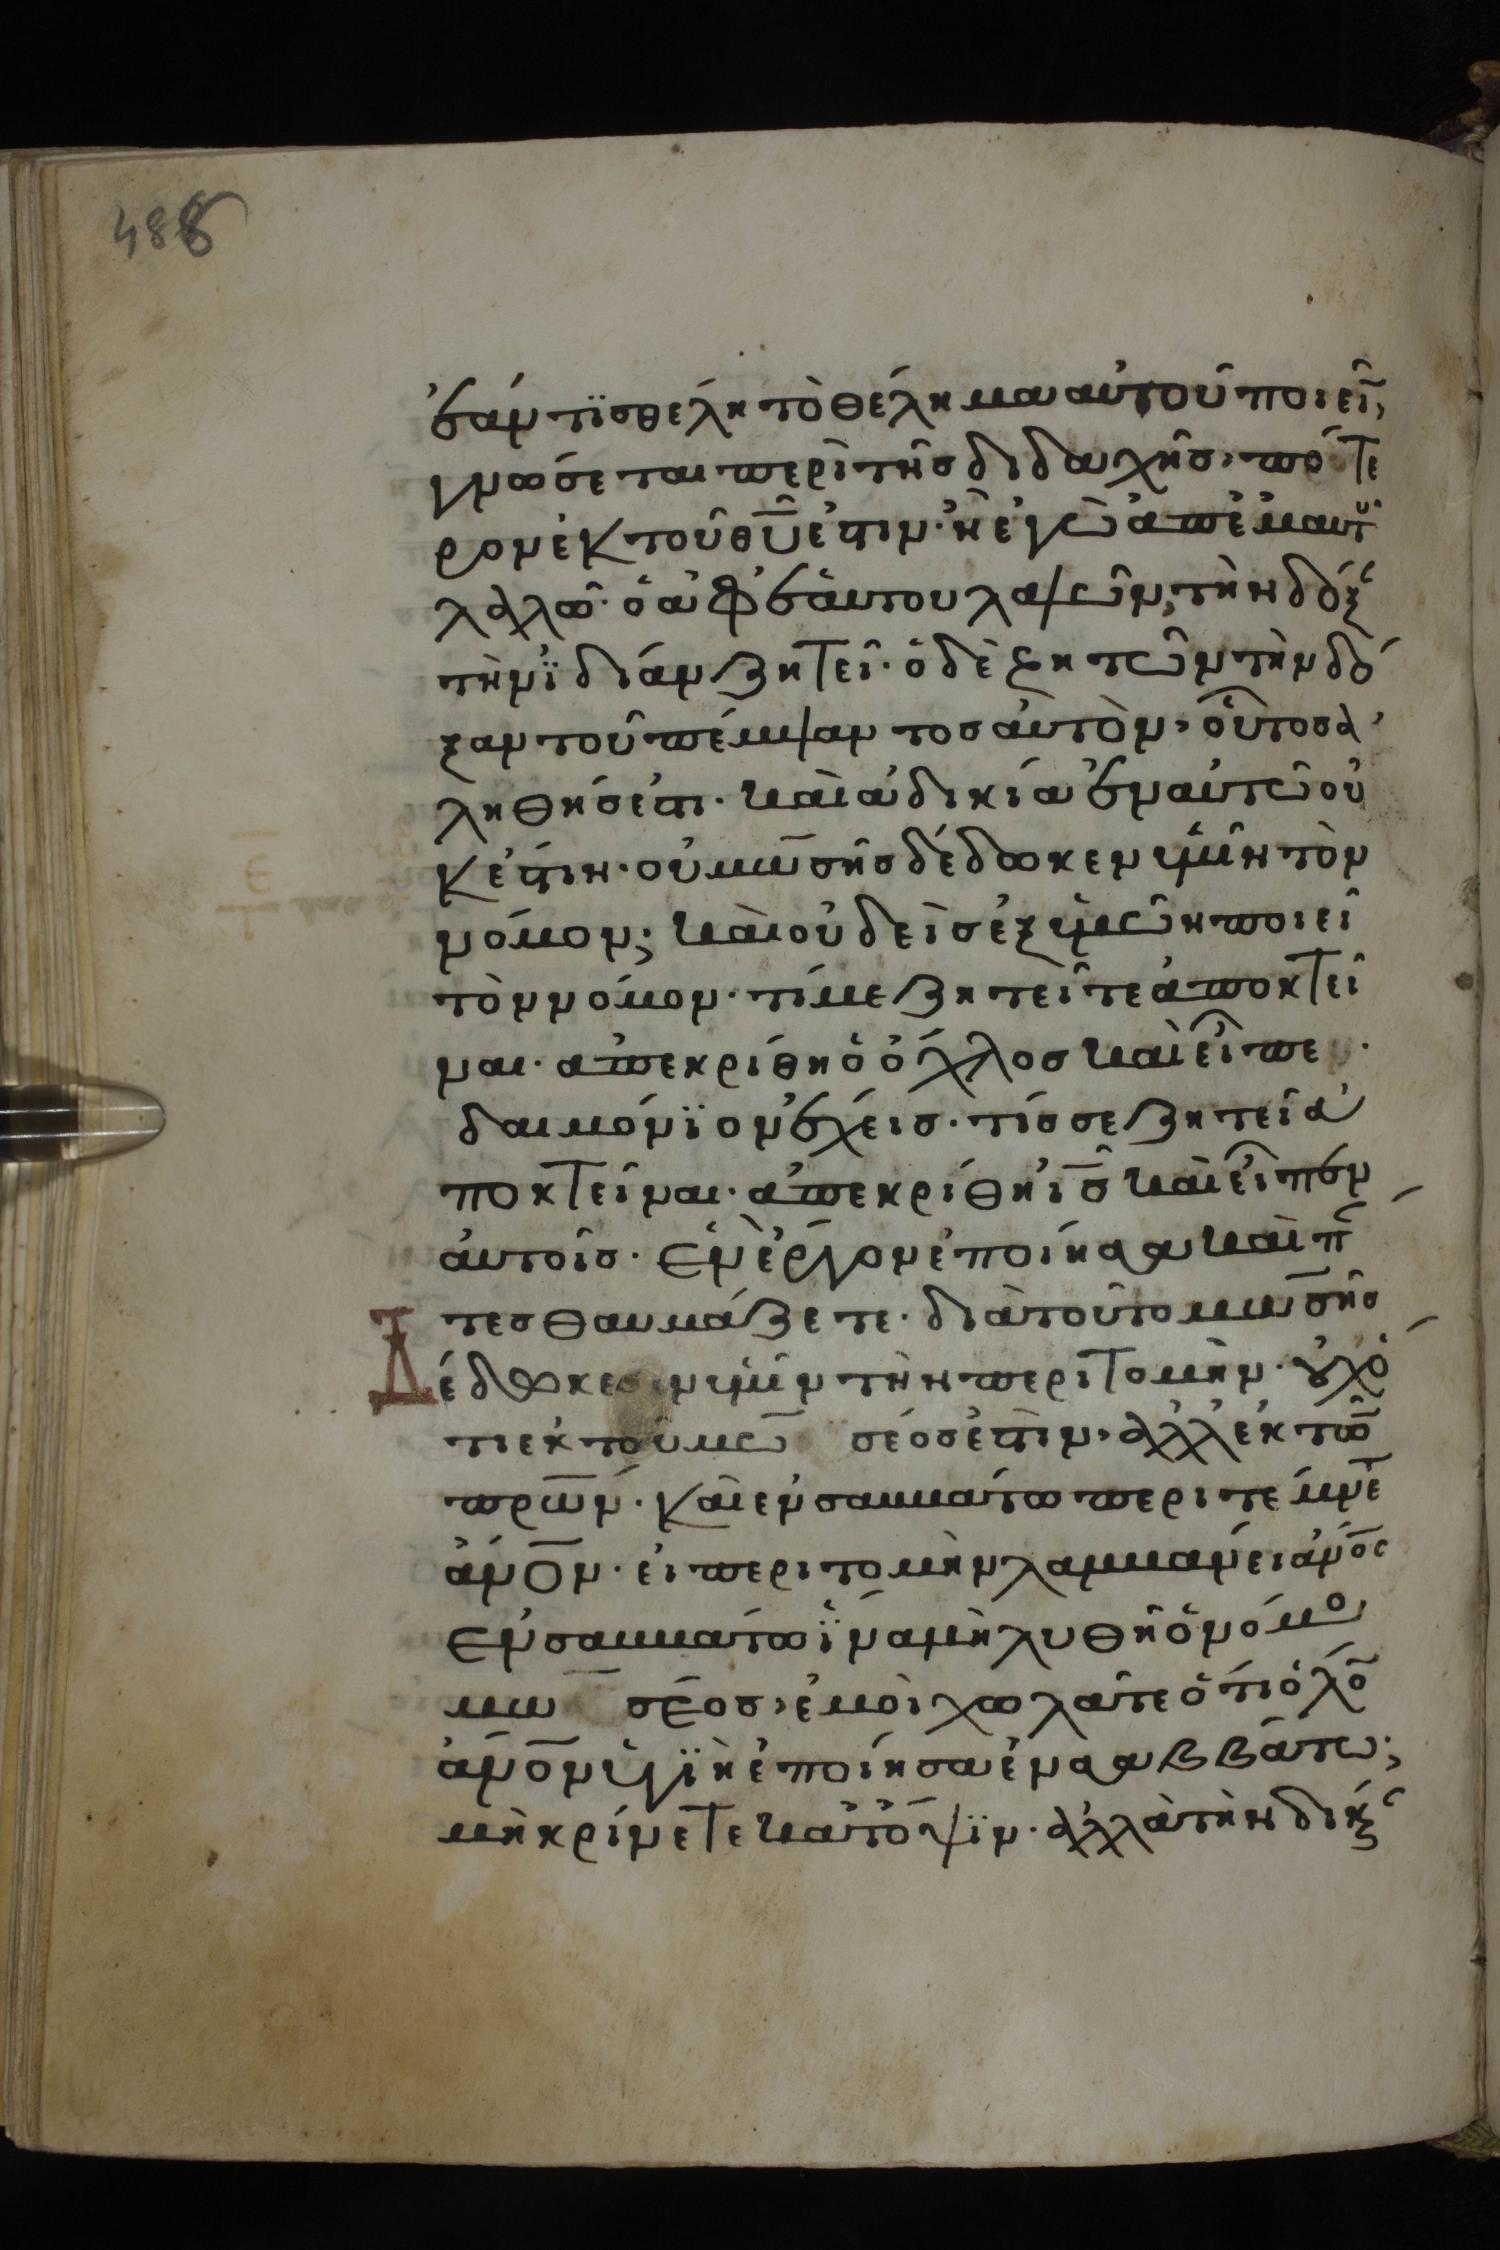 486
ἐάν τϊσ θέλη τὸ θέλημα αὐτοῦ ποιεῖ̅,
γνώσεται περὶ τῆσ διδαχῆσ, πότε
ρον ἐκ τοῦ θ̅υ̅ ἐστιν· ἢ ἐγὼ ἀπ ἐμαυτοῦ
λαλῶ· ὁ ἀφ ἑαυτου λαλῶν, τὴν δόξ
τὴν ἰδίαν ζητεῖ· ὁ δὲ ζητῶν τὴν δό
ξαν τοῦ πέμψαντοσ αὐτὸν, οὗτοσ ἀ
ληθήσ ἐστι· καὶ ἀδικία ἐν αὐτῶ οὐ
κ ἔστιν· οὐ μω̅σῆσ δέδωκεν ὑμῖν τὸν
νόμον; καὶ οὐδεὶσ ἐξ ὑμῶν ποιεῖ
τὸν νόμον· τί με ζητεῖτε ἀποκτεῖ
ναι· ἀπεκρίθη ὁ ὄχλοσ καὶ εἶπε·
δαιμόνϊον ἔχεισ· τίσ σε ζητεῖ ἀ
ποκτεῖναι· ἀπεκρίθη ὁ ι̅σ̅ καὶ εἶπεν
αὐτοῖσ· ἓν ἔργον ἐποίησα καὶ πά
τεσ θαυμάζετε· διὰ τοῦτο μω̅σῆσ
δέδωκεν ὑμῖν τὴν περιτομὴν· οὐχ ὅ
τι ἐκ τοῦ μω̅ σέοσ ἐστὶν, ἀλλ ἐκ τῶ̅
π̅ρ̅ω̅ν· καὶ ἐν σαββάτω περιτέμνετε
ἀ̅ν̅ο̅ν· εἰ περιτομὴν λαμβάνει ἀ̅ν̅ο̅ς
ἐν σαββάτω ἵνα μὴ λυθῆ ὁ νόμο
μω̅ σέοσ, ἐμοὶ χολᾶτε ὅτι ὅλο̅
ἀ̅ν̅ο̅ν ὑγϊῆ ἐποίησα ἐν σαββάτω;
μὴ κρίνετε κατ ὄψϊν· ἀλλὰ τὴν δικ